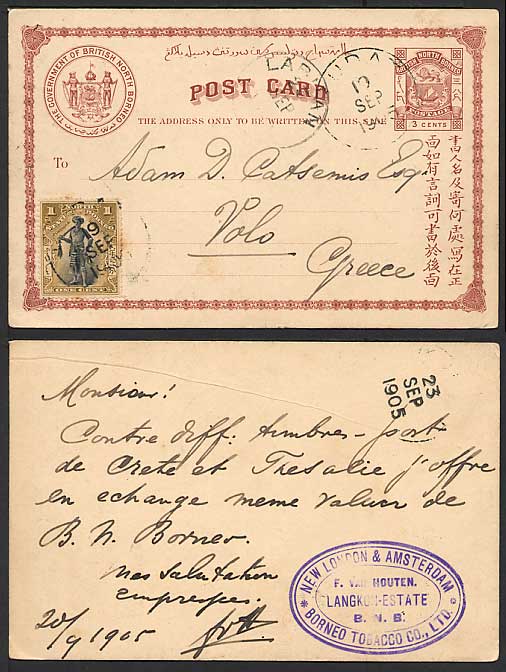 THE GOVERNMENT OF BRITISH NORTH BORNEO
POST CARD
THE ADDRESS ONLY TO BE WRITTEN ON THIS SIDE
NORTH BORNEO
POSTAGE
3 CENTS
LABUAN
SEP
KUDAT
SEP
19
To
Adam D. Catsemis Esq.
Volo
Greece
1
ONE CENT
9
SEP
19
書白人名及寄何處寫在正
面如有言詞可書於後面
23
SEP
1905
Monsieur!
Contre diff: timbres-poste
de Crete et Thesalie j'offre
en echange meme valuer de
B. N. Borneo.
mes salutation
empressées.
20/9 1905
NEW LONDON & AMSTERDAM
F. VAN HOUTEN.
LANGKON-ESTATE
B. N. B.
BORNEO TOBACCO CO., LTD.